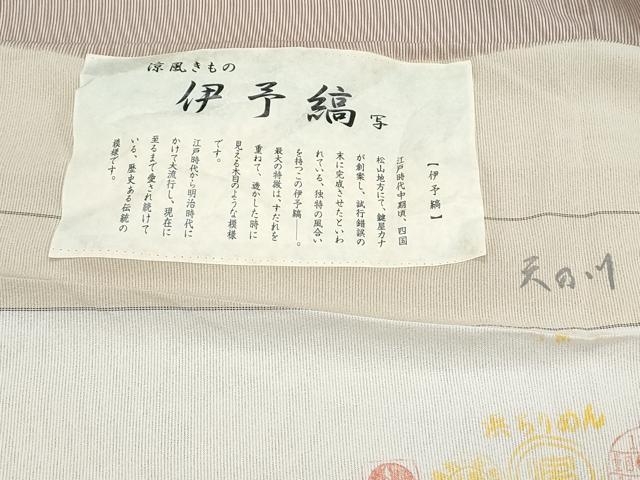 涼風きもの
伊予縞写
【伊予縞】
江戸時代中期頃、四国
松山地方にて、鍵屋カナ
が創案し、試行錯誤の
末に完成させたといわ
れている、独特の風合い
を持つこの伊予縞──。
最大の特徴は、すだれを
重ねて、透かした時に
見える木目のような模様
です。
江戸時代から明治時代に
かけて大流行し、現在に
至るまで愛され続けて
いる、歴史ある伝統の
模様です。
天の川
浜ちりめん